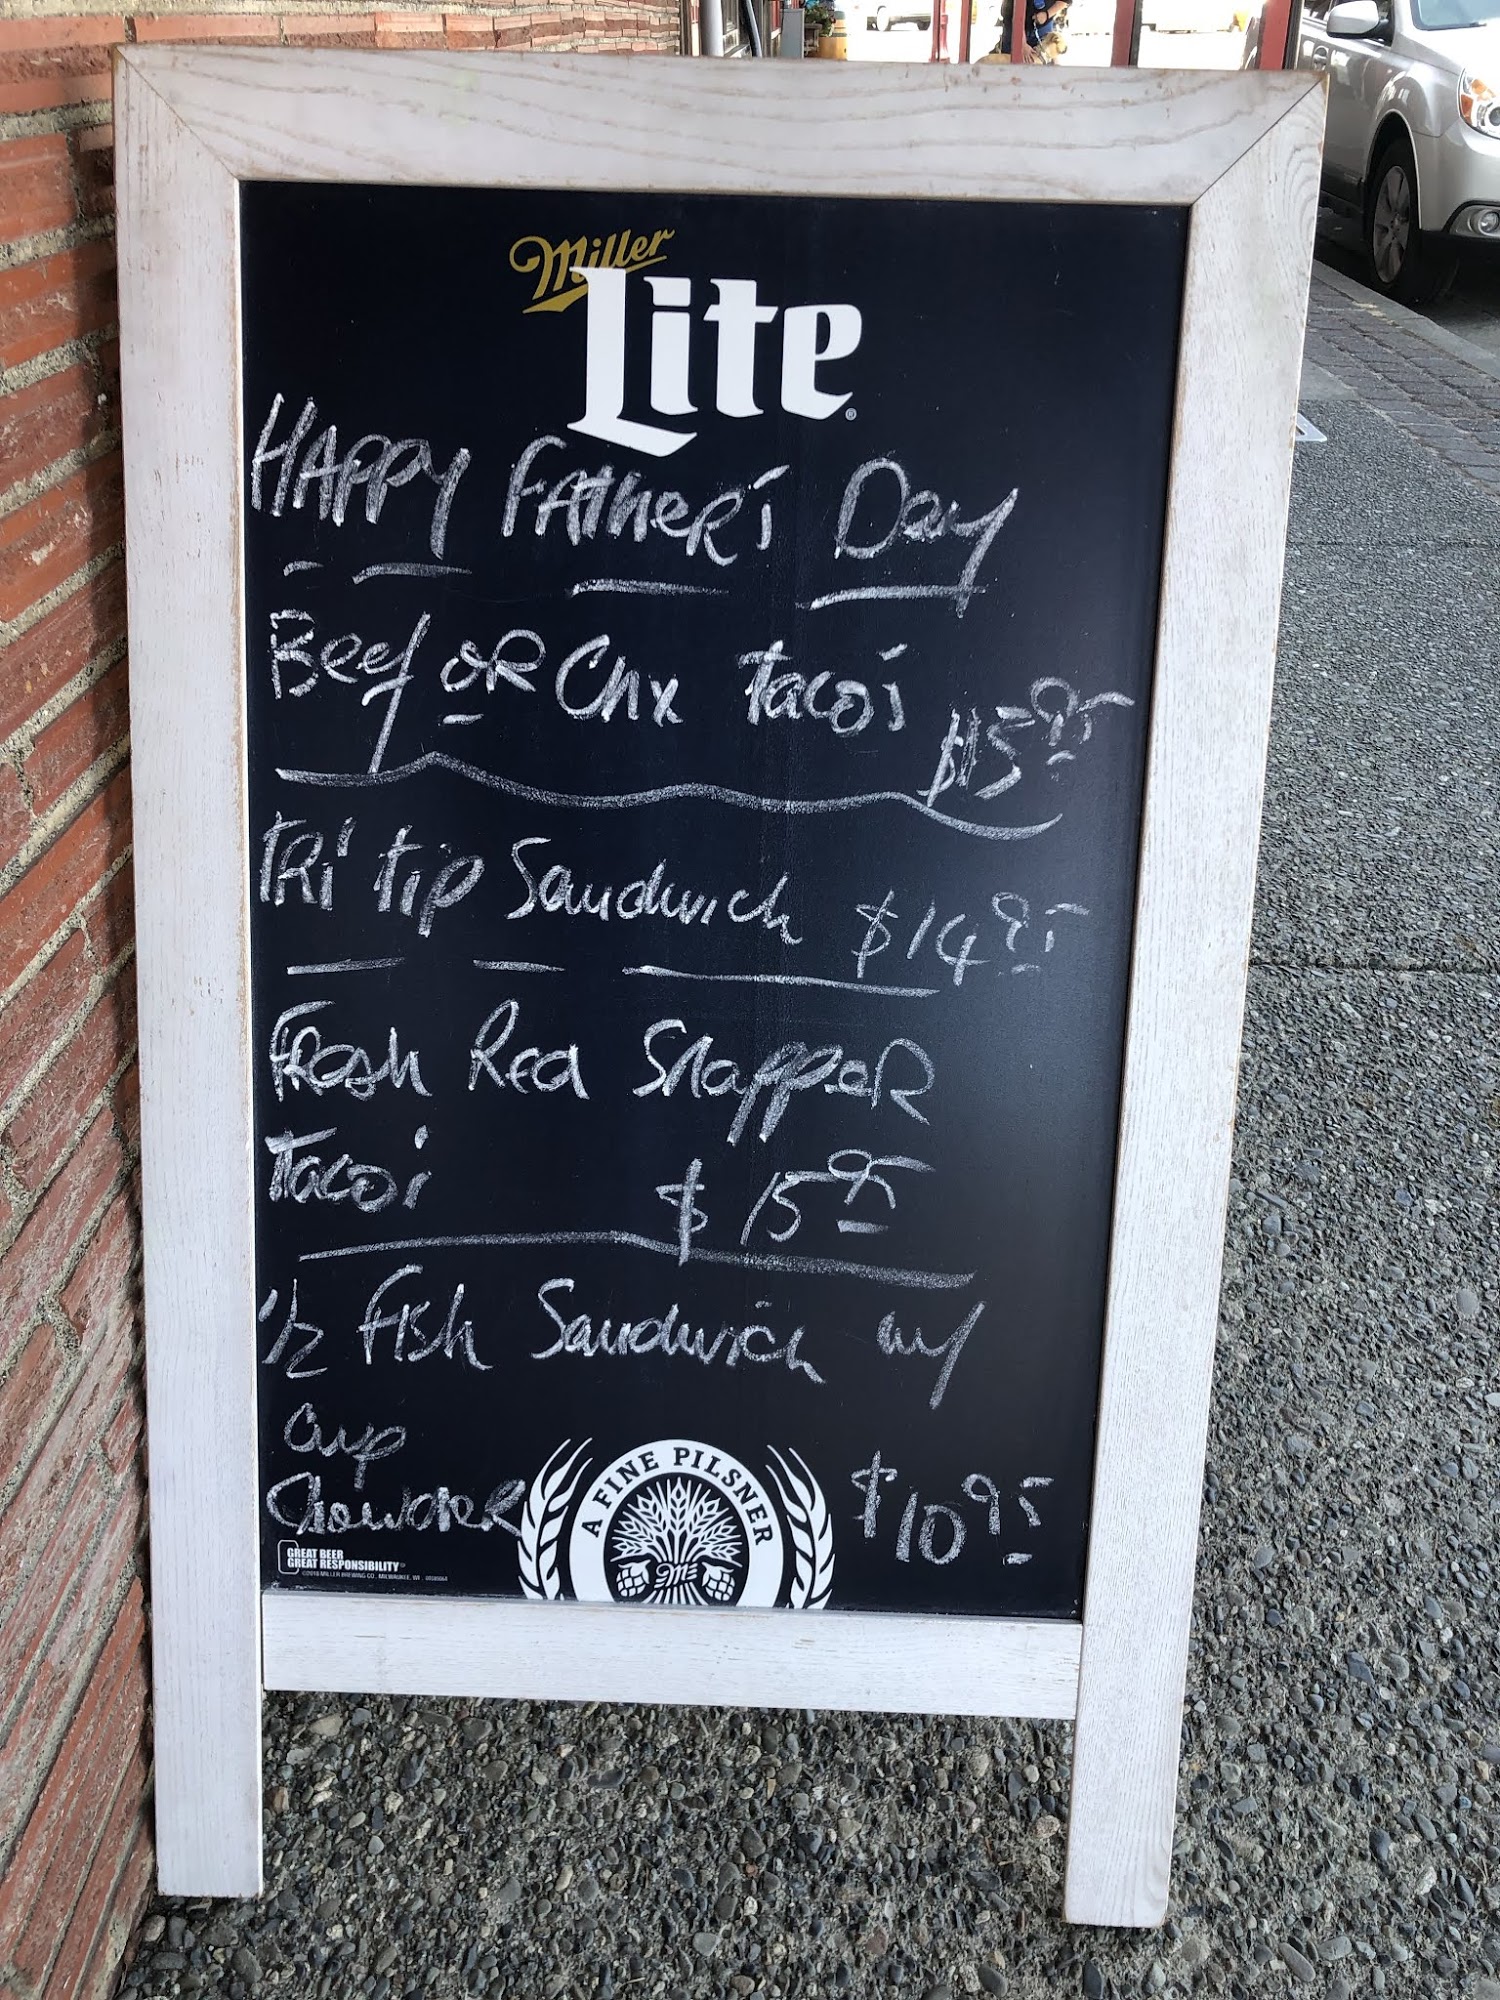 Miller
Lite
Happy Father's Day
Beef or Chx Tacos $13.95
Tri tip Sandwich $14.95
Fresh Red Snapper
Tacos $15.95
1/2 Fish Sandwich w/
cup
Chowder $10.95
A FINE PILSNER
GREAT BEER
GREAT RESPONSIBILITY
©2018 MILLER BREWING CO., MILWAUKEE, WI